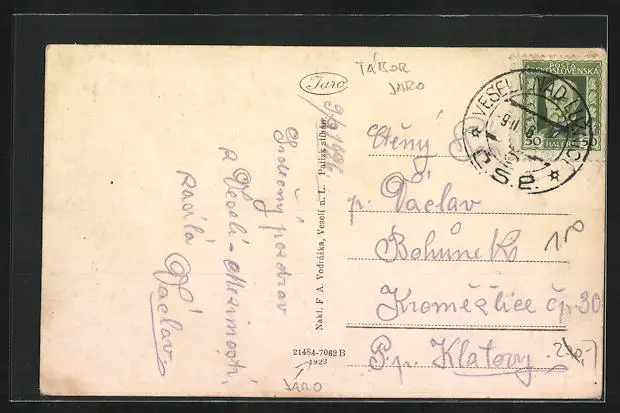 TÁBOR
JARO
Jaro
POSTA
ČESKOSLOVENSKA
50 HALÉŘŮ 50
VESELÍ NAD LUŽNICÍ
Č.S.P.
Srdečný pozdrav
z Veselí-Mezimostí,
Václav
Nakl. F A Vodrážka, Veselí n. L. Padisk stíhán.
21484-7062 B
1922
JARO
Ctěný
p. Václav
Bohunek
Kroměždice čp. 30
P.p. Klatovy
150